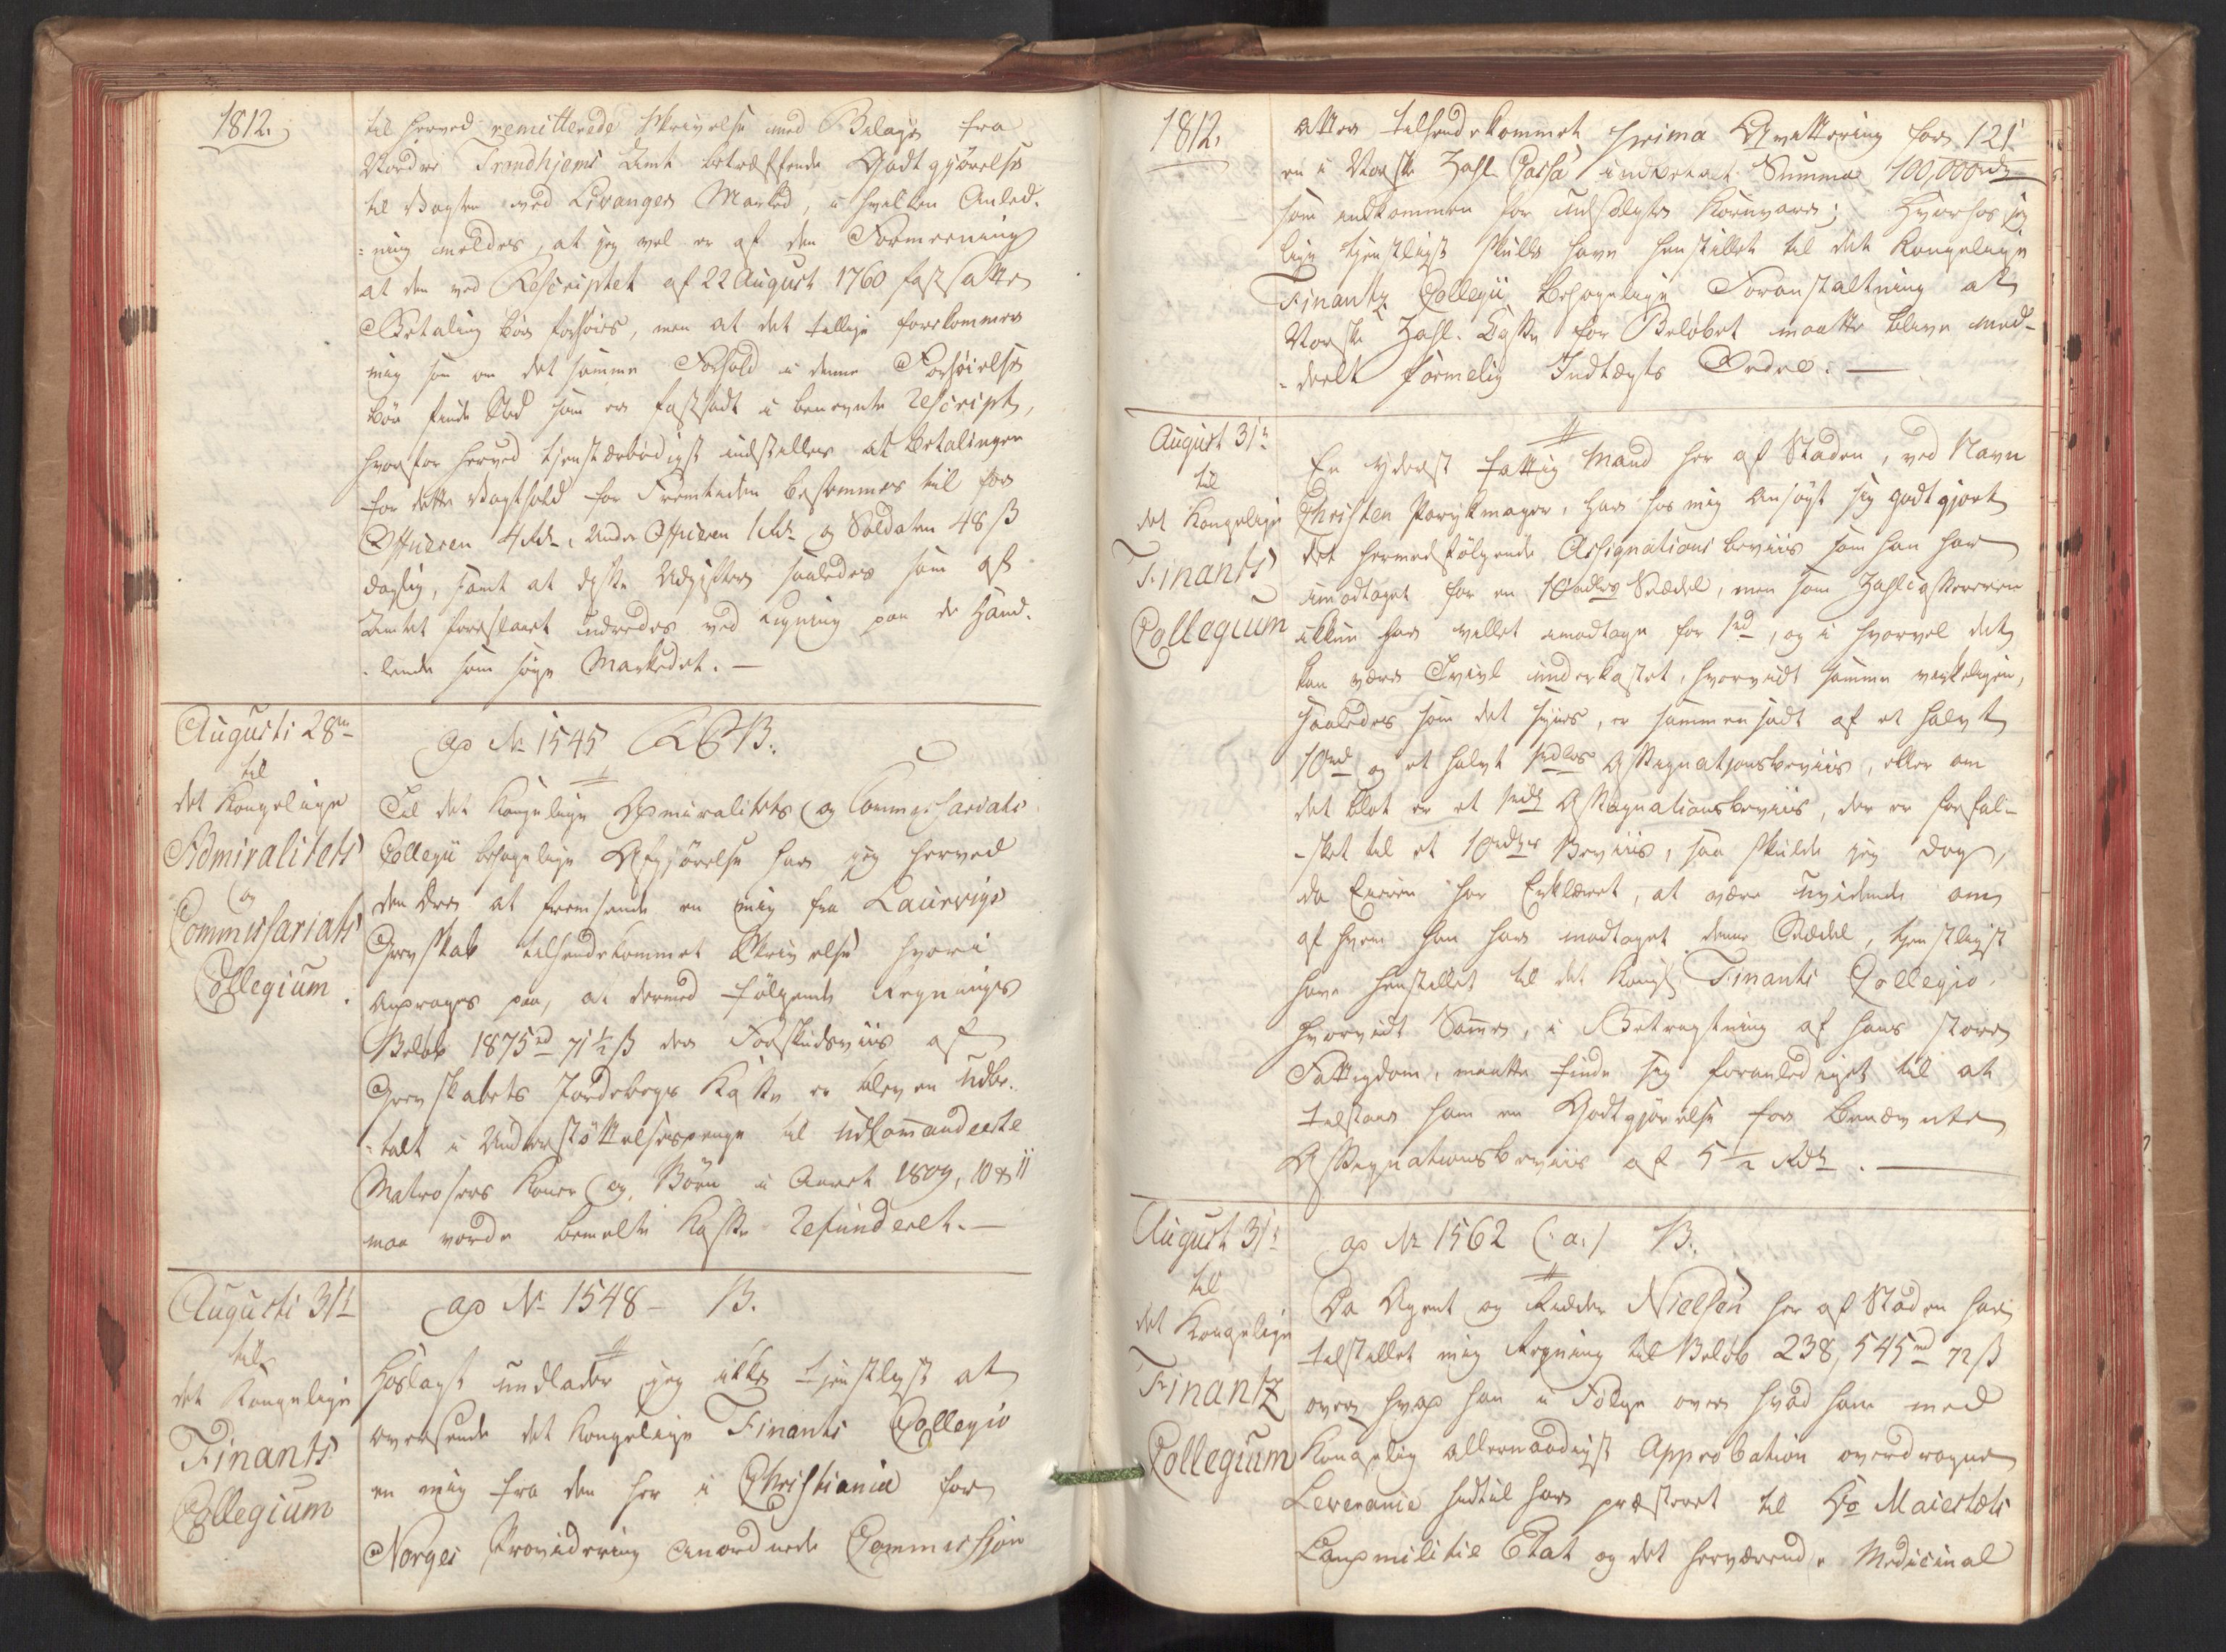 1812.
til herved remitterede Skrivelse med Bilage fra
Nordre Trondhjems Amt betræffende Godtgjörelse
til Vagten ved Levanger Marked, i hvilken Anled-
-ning meldes, at jeg vel er af den Formeening
at den ved Rescriptet af 22 August 1760 fastsatte
Betaling bör forhöies, men at det tillige forekommer
mig som om det samme Forhold i denne Forhöielse
bör finde Sted som er fastsadt i benevnte Rescript,
hvorfor herved tjenstærbödigst indstilles at Betalingen
for dette Vagthold for Fremtiden bestemmes til for
Officeren 4 Rdr, Under Officeren 1 Rdr og Soldaten 48 ß
daglig, samt at disse Udgifter saaledes som af
Amtet foreslaaet udredes ved Ligning paa de Hand-
-lende som söge Markedet. —
Augusti 28de
til
det Kongelige
Admiralitets
og
Commissariats
Collegium.
ad No 1545 B.
Til det Kongelige Admiralitets og Commissariats
Collegii behagelige Afgjörelse har jeg herved
den Ære at fremsende en mig fra Laurvigs
Grevskab tilhændekommet Skrivelse hvori
andrages paa, at dermed fölgende Regnings
Belöb 1875 rd 71½ ß der Forskudsviis af
Grevskabets Jordebogs Kasse er bleven udbe-
-talt i Understöttelsespenge til udkommanderte
Matrosers Koner og Börn i Aaret 1809, 10 & 11
maa vorde bemelte Kasse Refunderet. —
Augusti 31te
til
det Kongelige
Finants
Collegium
ad No 1548 – B.
Hoslagt undlader jeg ikke tjenstligst at
oversende det Kongelige Finants Collegio
en mig fra den her i Christiania for
Norges Providering anordnede Commission
1812.
atter tilhændekommet prima Qvittering for 121
en i Norske Zahl Cassa indbetalt Summa 100,000 rd
som indkommen for udsolgte Kornvarer; hvorhos jeg
lige tjenstligst skulle have henstillet til det Kongelige
Finantz Collegii behagelige Foranstaltning at
Norske Zahl. Kasse for Belöbet maatte blive med-
-deelt formelig Indtægts Ordre. —
August 31te
til
det Kongelige
Finants
Collegium
En yderst fattig Mand her af Staden, ved Navn
Christen Parykmager, har hos mig ansögt sig godtgjort
det hermedfölgende Assignations beviis som han har
imodtaget for en 10 rdlrs Seddel, men som Zahlcassereren
ikkun har villet imodtage for 1 rd, og i hvorvel det
kan være Tvivl underkastet, hvorvidt samme virkeligen,
saaledes som det synes, er sammensadt af et halvt
10 rd og et halvt 1 rdlrs Assignationsbeviis, eller om
det blot er et 1 rdlr Assignationsbeviis, der er forfal-
-sket til et 10 rdlrs Beviis, saa skulde jeg dog,
da Eieren har Erklæret, at være uvidende om
af hvem han har modtaget denne Seddel, tjenstligst
have henstillet til det Kongl. Finants Collegio,
hvorvidt Samme, i Betragtning af hans store
Fattigdom, maatte finde sig foranlediget til at
tilstaae ham en Godtgjörelse for benævnte
Assignationsbeviis af 5½ Rdr. —
August 31te
til
det Kongelige
Finantz
Collegium
ad No 1562 (: a :) B.
Da Agent og Ridder Nielsen her af Staden har
tilstillet mig Regning til Belöb 238,545 rd 72 ß
over hvad han i Fölge over hvad ham med
Kongelig allernaadigst Approbation overdragne
Leverance hidtil har præsteret til Hs Maiestæts
Landmilitie Etat og det herværende Medicinal